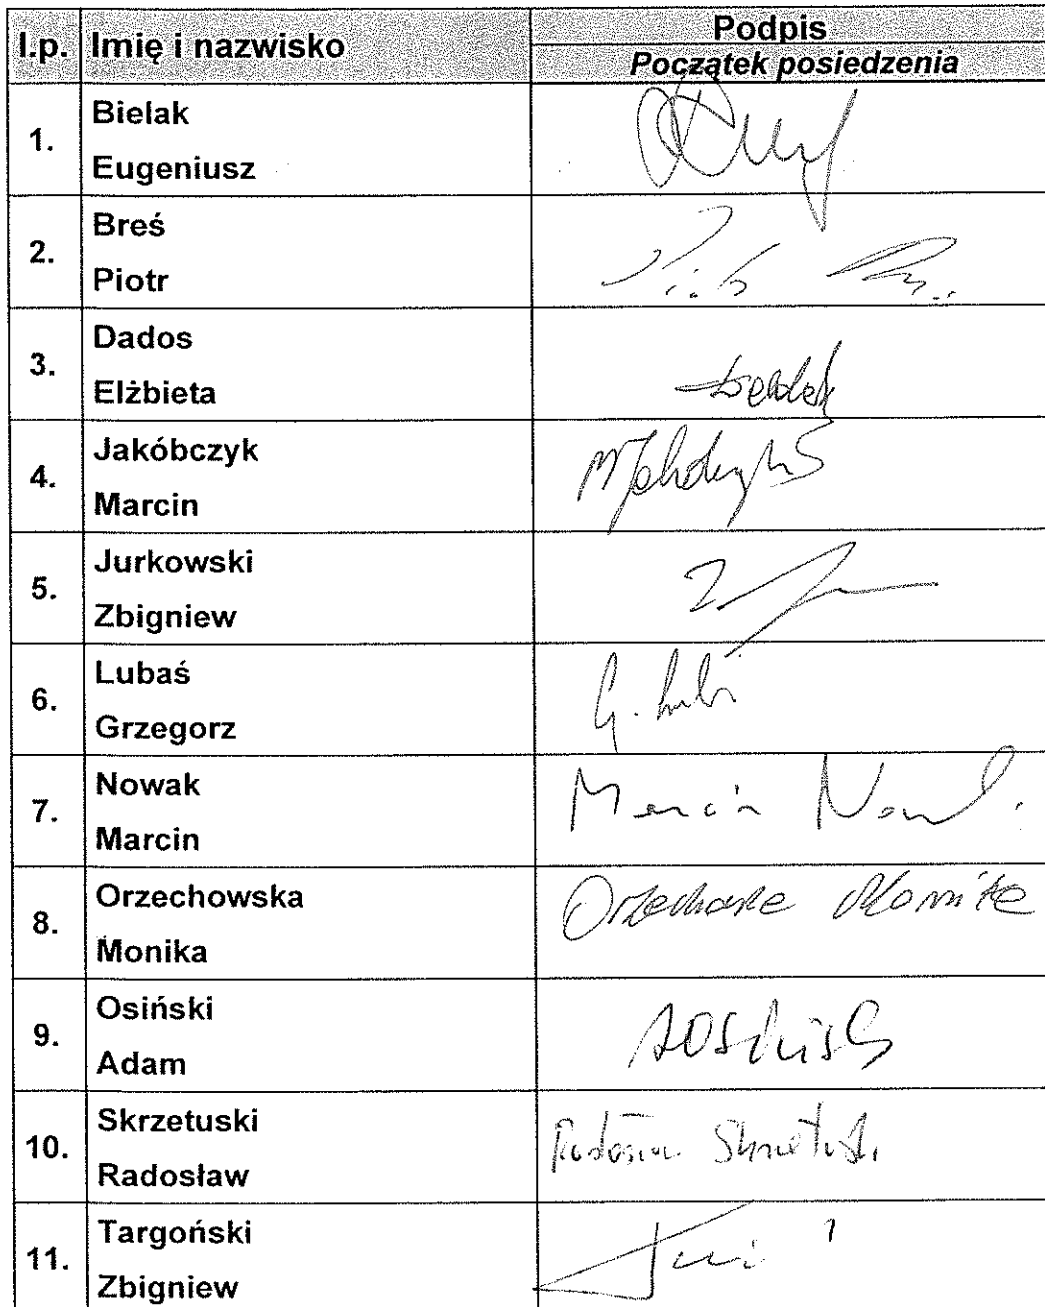 l.p. Imię i nazwisko Podpis
Początek posiedzenia
1. Bielak
Eugeniusz
2. Breś
Piotr
3. Dados
Elżbieta
4. Jakóbczyk
Marcin
5. Jurkowski
Zbigniew
6. Lubaś
Grzegorz
7. Nowak
Marcin
Marcin Nowak
8. Orzechowska
Monika
Orzechowska Monika
9. Osiński
Adam
10. Skrzetuski
Radosław
Radosław Skrzetuski
11. Targoński
Zbigniew